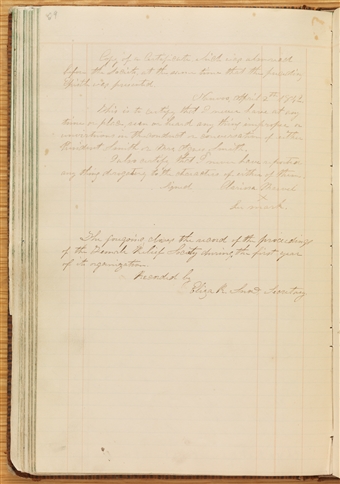 84
Copy of a Certificate which was advanced
before the Society at the same time that the preceding
was presented.
Nauvoo April 2nd 1842.
This is to certify that I never have at any
time or place seen or heard any thing improper or
in the conduct or conversation of either
President Smith or
I also certify that I never have reported
any thing derogatory to the characters of either of them.
Signed Clarissa Marvel
X
her mark.
The foregoing closes the record of the proceedings
of the Female Relief Society during the first year
of its organization
Recorded by
Eliza R. Snow Secretary